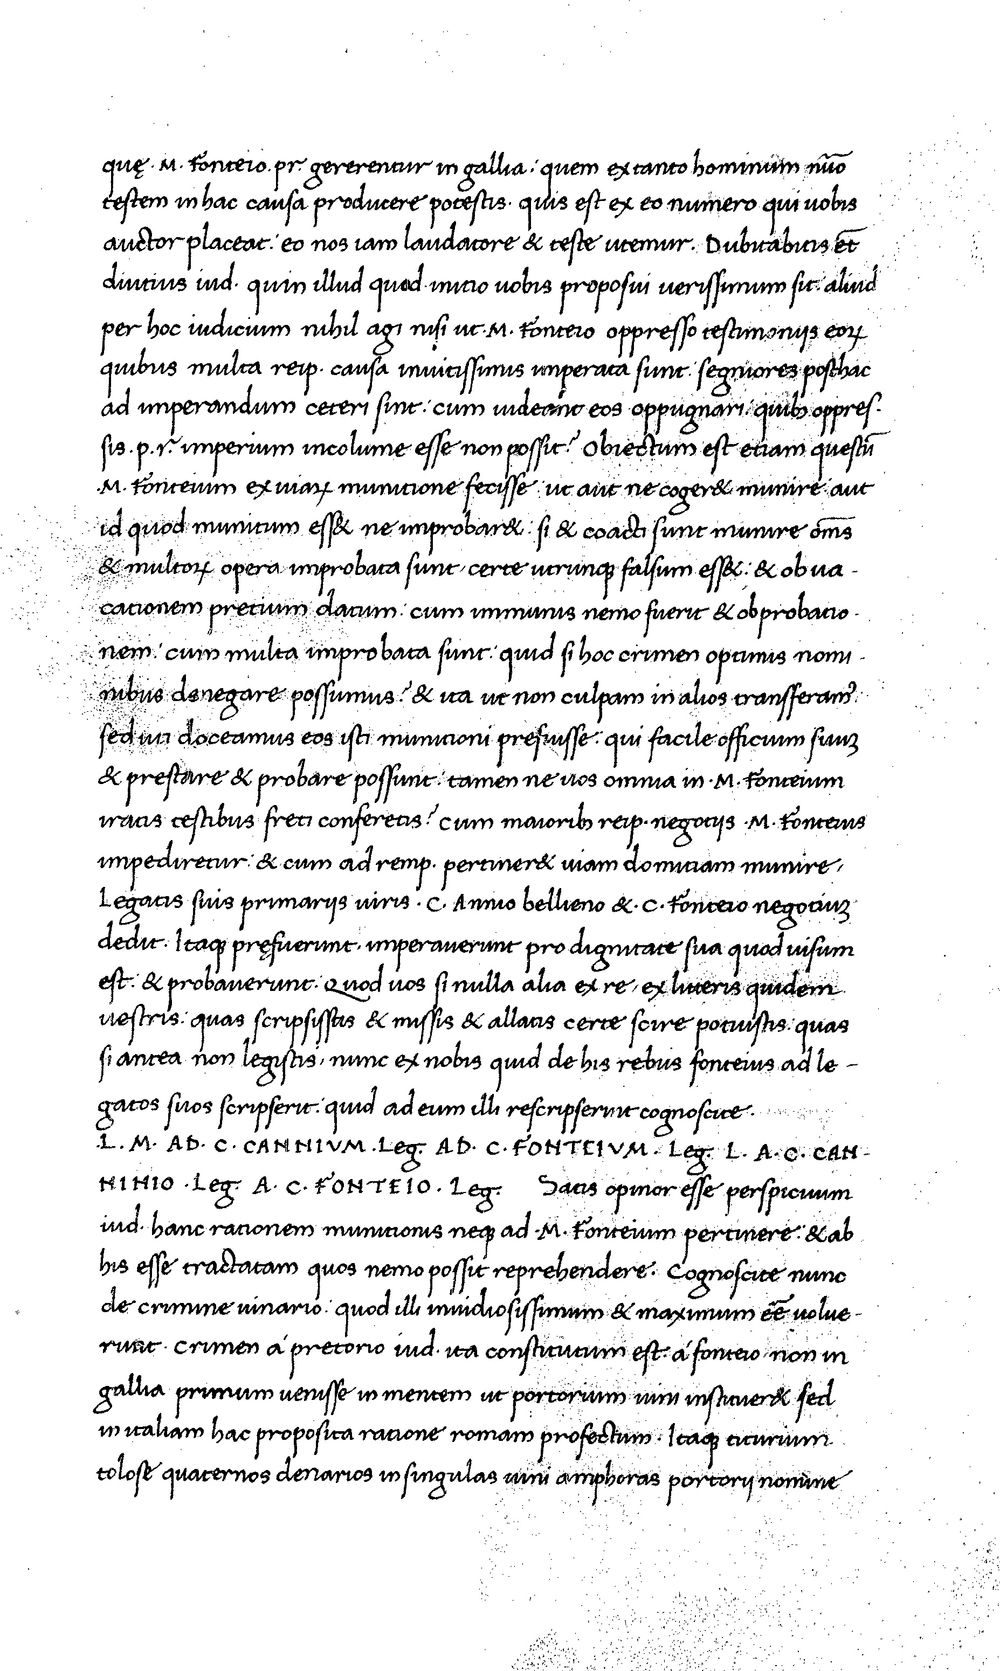 quę · M. Fonteio. pr̃. gererentur in gallia: quem ex tanto hominum nũo
testem in hac causa producere potestis. quis est ex eo numero qui uobis
auctor placeat: eo nos iam laudatore & teste utemur. Dubitabitis et̄
diutius iud. quin illud quod initio uobis proposui uerissimum sit: aliud
per hoc iudicium nihil agi nisi ut · M. Fonteio oppresso testimonijs eoꝝ
quibus multa reip. causa inuitissimis imperata sunt: segniores posthac
ad imperandum ceteri sint: cum uideant eos oppugnari: quibꝫ oppres-
sis. p. r̃. imperium incolume esse non possit? Obiectum est etiam questū
·M. Fonteium ex uiaꝝ munitione fecisse ut aut ne coger& munire: aut
id quod munitum ess& ne improbar&: si & coacti sunt munire om̄s
& multoꝝ opera improbata sunt: certe utrunqꝫ falsum ess&: & ob ua-
cationem pretium datum: cum immunis nemo fuerit & ob probatio-
nem: cum multa improbata sunt: quid si hoc crimen optimis nomi-
nibus denegare possumus? & ita ut non culpam in alios transferamꝰ:
sed uti doceamus eos isti munitioni prefuisse: qui facile officium suuꝫ
& prestare & probare possunt: tamen ne uos omnia in · M. Fonteium
iratis testibus freti conferetis? Cum maioribꝫ reip. negotijs · M. Fonteius
impediretur: & cum ad remp. pertiner& uiam domitiam munire,
Legatis suis primarijs uiris · C. Annio bellieno & · C. Fonteio negotiuꝫ
dedit. Itaqꝫ pręfuerunt. imperauerunt pro dignitate sua quod uisum
est: & probauerunt. Quod uos si nulla alia ex re, ex litteris quidem
uestris: quas scripsistis & missis & allatis certe scire potuistis: quas
si antea non legistis, nunc ex nobis quid de his rebus fonteius ad le-
gatos suos scripserit: quid ad eum illi rescripserint cognoscite.
L. M. AD. C. CANNIVM. Leg. AD. C. FONTEIVM. Leg. L. A. C. CAN-
NINIO. Leg. A. C. FONTEIO. Leg. Satis opinor esse perspicuum
iud. hanc rationem munitionis neqꝫ ad · M. Fonteium pertinere: & ab
his esse tractatam quos nemo possit reprehendere. Cognoscite nunc
de crimine uinario: quod illi inuidiosissimum & maximum eē̄ uolue-
runt. Crimen á pretorio iud. ita constitutum est: á fonteio non in
gallia primum uenisse in mentem ut portorium uini institueret sed
in italiam hac proposita ratione romam profectum. Itaqꝫ titurium
tolose quaternos denarios in singulas uini amphoras portorij nomine